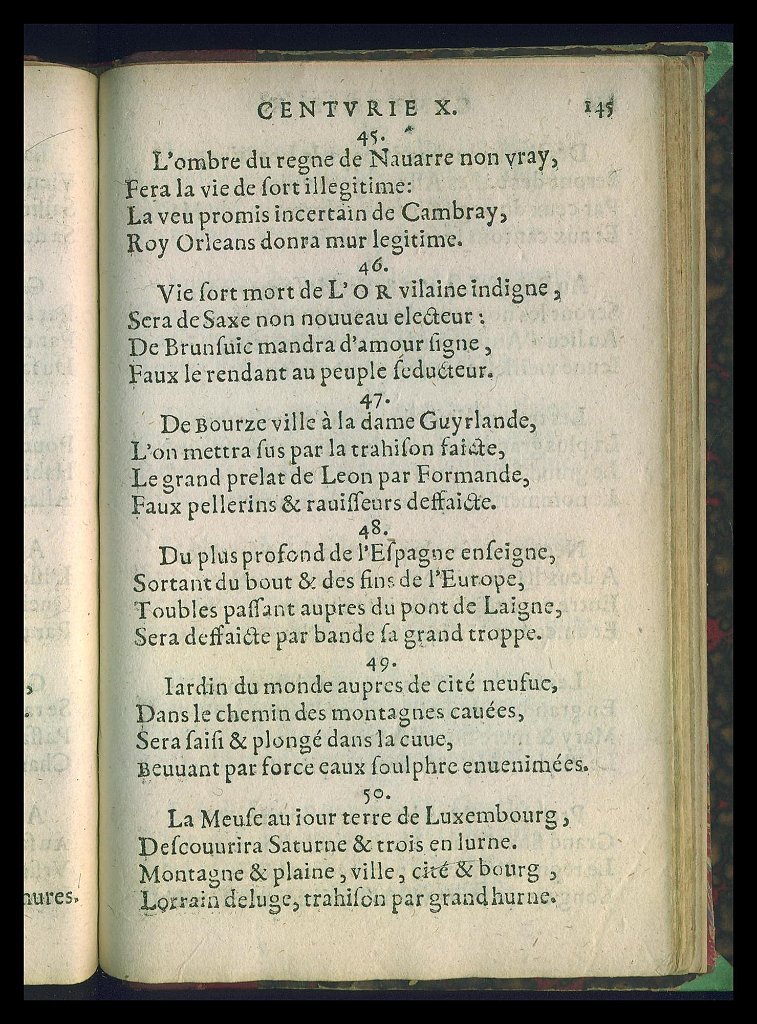 CENTVRIE X. 145
45.
L'ombre du regne de Nauarre non vray,
Fera la vie de ſort illegitime:
La veu promis incertain de Cambray,
Roy Orleans donra mur legitime.
46.
Vie ſort mort de L'OR vilaine indigne,
Sera de Saxe non nouueau electeur:
De Brunſuic mandra d'amour ſigne,
Faux le rendant au peuple ſeducteur.
47.
De Bourze ville à la dame Guyrlande,
L'on mettra ſus par la trahiſon faicte,
Le grand prelat de Leon par Formande,
Faux pellerins & rauiſſeurs deffaicte.
48.
Du plus profond de l'Eſpagne enſeigne,
Sortant du bout & des fins de l'Europe,
Toubles paſſant aupres du pont de Laigne,
Sera deffaicte par bande ſa grand troppe.
49.
Iardin du monde aupres de cité neufue,
Dans le chemin des montagnes cauées,
Sera ſaiſi & plongé dans la cuue,
Beuuant par force eaux ſoulphre enuenimées.
50.
La Meuſe au iour terre de Luxembourg,
Deſcouurira Saturne & trois en lurne.
Montagne & plaine, ville, cité & bourg,
Lorrain deluge, trahiſon par grand hurne.
nures.